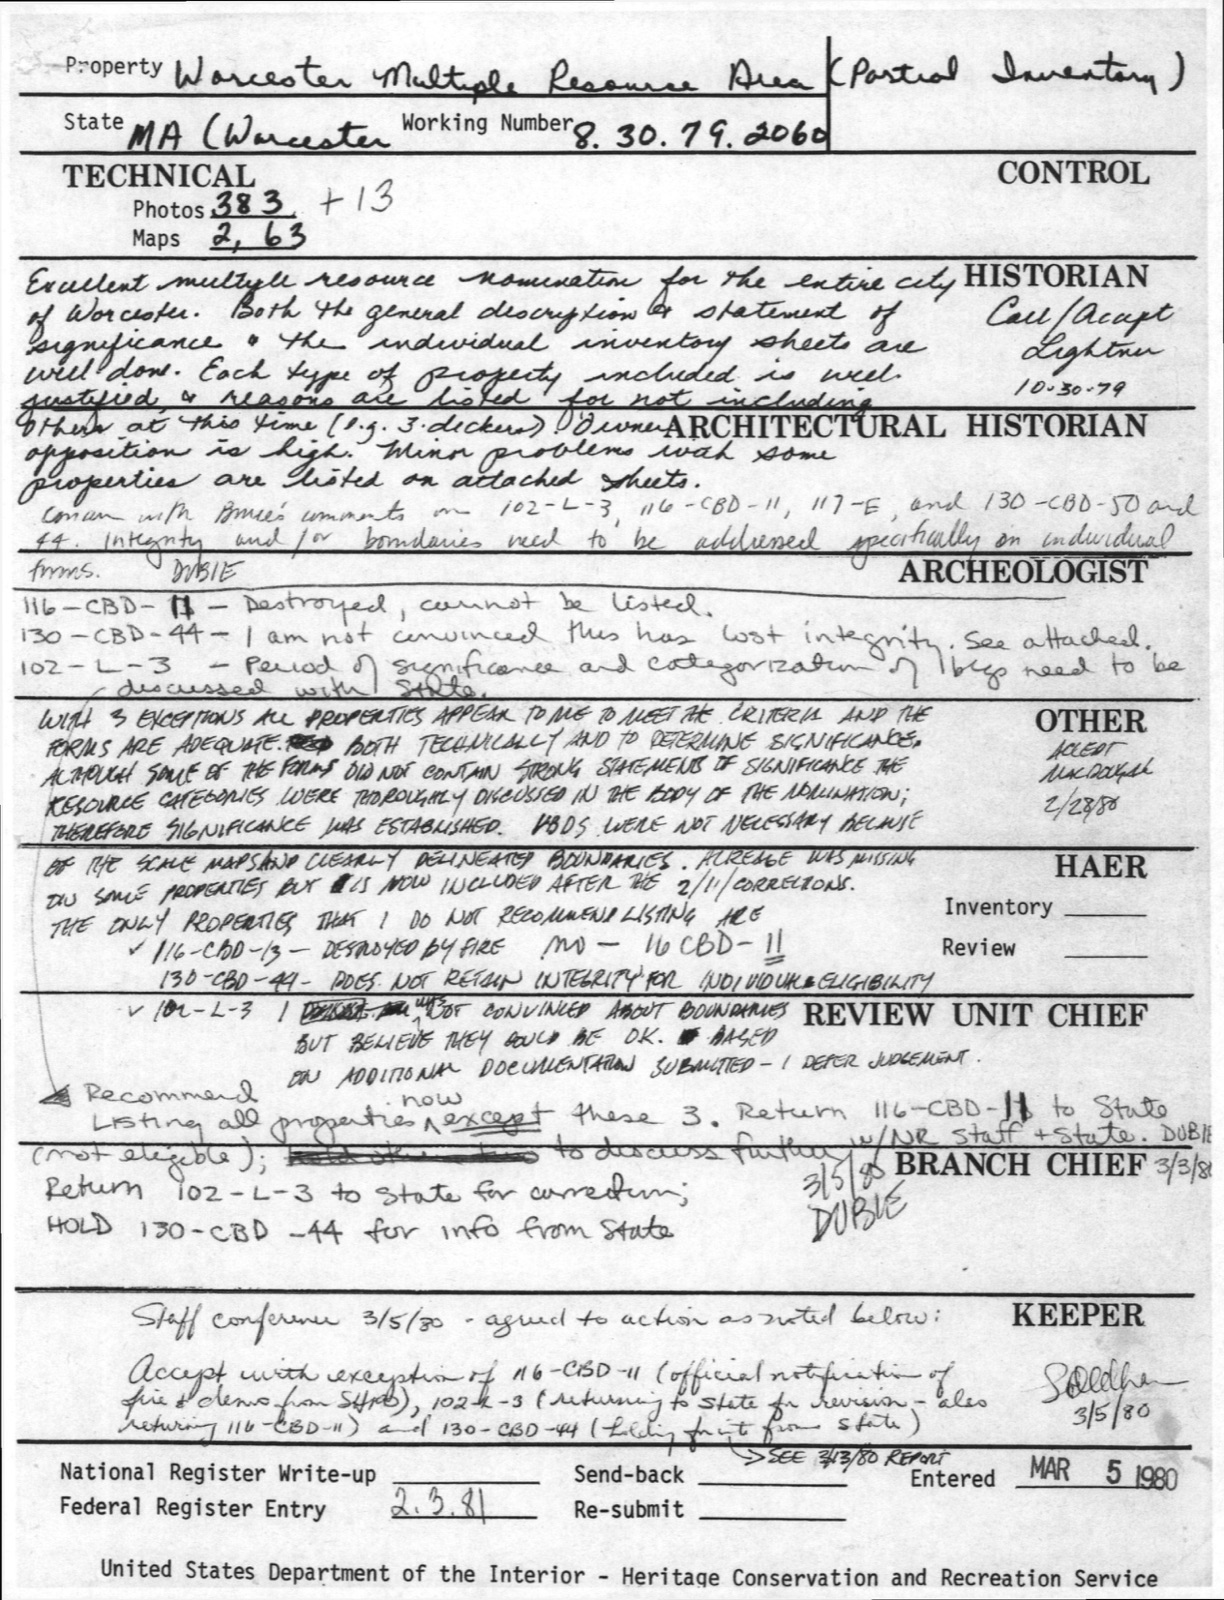 Property Worcester Multiple Resource Area (Partial Inventory)
State MA (Worcester Working Number 8.30.79.2060
TECHNICAL CONTROL
Photos 383 +13
Maps 2, 63
Excellent multiple resource nomination for the entire city HISTORIAN
of Worcester. Both the general description & statement of Call/Accept
significance & the individual inventory sheets are Lightner
well done. Each type of property included is well 10-30-79
justified, & reasons are listed for not including
others at this time (e.g. 3-deckers). Owner ARCHITECTURAL HISTORIAN
opposition is high. Minor problems with some
properties are listed on attached sheets.
concur with Bruce's comments on 102-L-3, 116-CBD-11, 117-E, and 130-CBD-50 and
44. Integrity and/or boundaries need to be addressed specifically on individual
forms. DUBIE ARCHEOLOGIST
116-CBD-11 - Destroyed, cannot be listed.
130-CBD-44 - I am not convinced this has lost integrity. See attached.
102-L-3 - Period of significance and categorization of bldgs need to be
discussed with State.
WITH 3 EXCEPTIONS ALL PROPERTIES APPEAR TO ME TO MEET THE CRITERIA AND THE OTHER
FORMS ARE ADEQUATE BOTH TECHNICALLY AND TO DETERMINE SIGNIFICANCE. ACCEPT
ALTHOUGH SOME OF THE FORMS DID NOT CONTAIN STRONG STATEMENTS OF SIGNIFICANCE THE MACDOUGAL
RESOURCE CATEGORIES WERE THOROUGHLY DISCUSSED IN THE BODY OF THE NOMINATION; 2/28/80
THEREFORE SIGNIFICANCE WAS ESTABLISHED. VBDS WERE NOT NECESSARY BECAUSE
OF THE SCALE MAPS AND CLEARLY DELINEATED BOUNDARIES. ACREAGE WAS MISSING HAER
ON SOME PROPERTIES BUT IS NOW INCLUDED AFTER THE 2/11/CORRECTIONS.
THE ONLY PROPERTIES THAT I DO NOT RECOMMEND LISTING ARE Inventory
✓ 116-CBD-13 - DESTROYED BY FIRE NO - 16 CBD-11 Review
130-CBD-44 - DOES NOT RETAIN INTEGRITY FOR INDIVIDUAL ELIGIBILITY
✓ 102-L-3 I WAS NOT CONVINCED ABOUT BOUNDARIES REVIEW UNIT CHIEF
BUT BELIEVE THEY COULD BE OK. BASED
ON ADDITIONAL DOCUMENTATION SUBMITTED - I DEFER JUDGEMENT.
Recommend
Listing all properties now except these 3. Return 116-CBD-11 to State
(not eligible); to discuss further w/NR Staff + State. DUBIE
BRANCH CHIEF 3/3/80
Return 102-L-3 to State for correction; 3/5/80
HOLD 130-CBD-44 for info from State DUBIE
Staff conference 3/5/80 - agreed to action as noted below: KEEPER
Accept with exception of 116-CBD-11 (official notification of
fire & demo from SHPO), 102-L-3 (returning to State for revision - also
returning 116-CBD-11) and 130-CBD-44 (holding for info from State) 3/5/80
SEE 3/13/80 REPORT
National Register Write-up Send-back Entered MAR 5 1980
Federal Register Entry 2.3.81 Re-submit
United States Department of the Interior - Heritage Conservation and Recreation Service